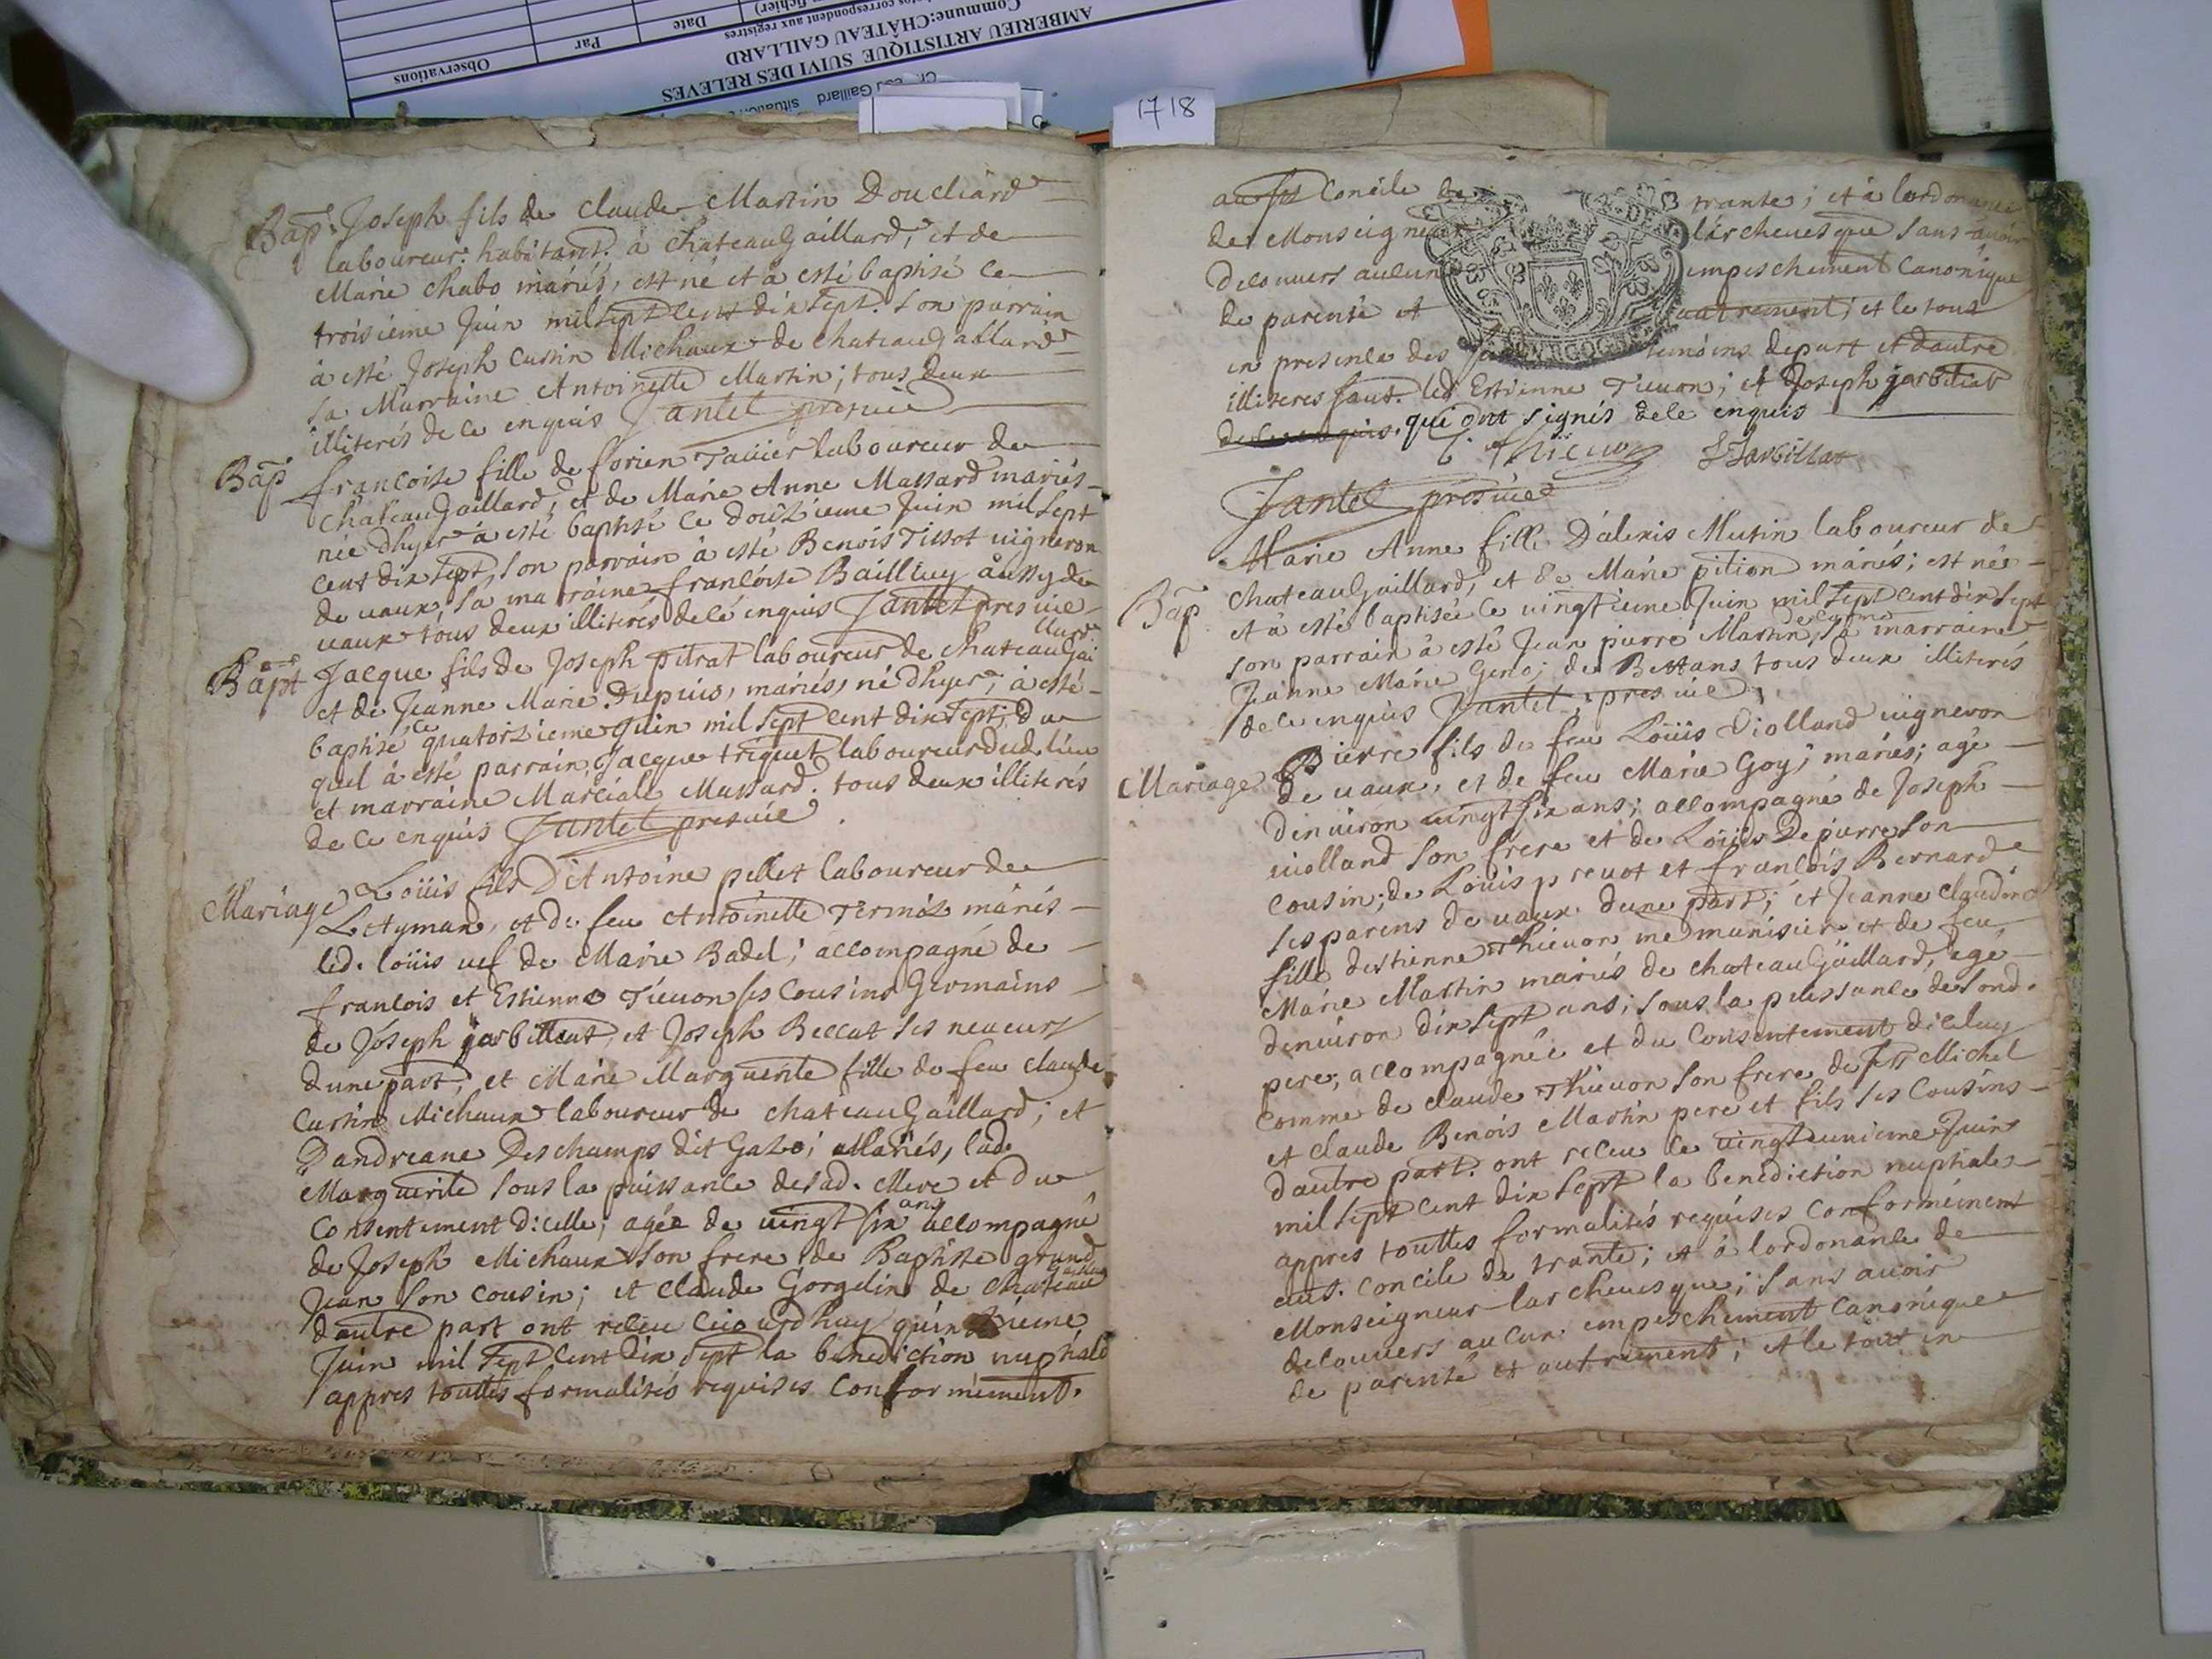 Observations
Par
Date
AMBERIEU ARTISTIQUE SUIVI DES RELEVES
Commune:CHÂTEAU GAILLARD
correspondent aux registres
fichier)
Gaillard situation
1718
Bap^t. Joseph fils de claude Martin Doucliard
laboureur. habitant. à chateauGaillard, et de
Marie chabo mariés, est né et à esté baptisé le
troisieme Juin mil sept cent dix sept. son parrain
à esté Joseph Curtin Michaux de chateauGaillard
sa Marraine Antoinette Martin; tous deux
illiterés de ce enquis Jantel presvicé
Bap^t francoise fille de forien Tavier laboureur de
chateauGaillard, et de Marie Anne Massard mariés
née dhyer à esté baptisé le douzieme Juin mil sept
cent dix sept son parrain à esté Benois Tissot vigneron
de vaux, sa marraine francoise Bailluy aussy de
vaux tous deux illiterés de ce enquis Jantel presvice
Bapt Jacque fils de Joseph pitrat laboureur de chateauGai
llard
et de Jeanne Marie Dupuis, mariés, né dhyer, à esté
baptisé le quatorzieme Juin mil sept cent dix sept; du
quel à esté parrain Jacque triquet laboureur dud. lieu
et marraine Marciale Massard. tous deux illiterés
de ce enquis Jantel presvicé
Mariage Loüis fils D'Antoine pellet laboureur de
Leyman, et de feu Antoinette Termoz mariés
led. loüis vef de Marie Badel; accompagné de
francois et Estienne Tievon ses cousins Germains
de Joseph jarbillat, et Joseph Beccat ses neveurs
dune part, et Marie Marguerite fille de feu claude
Curtin Michaux laboureur de chateauGaillard; et
Dandreane Deschamps dit Gazo; Mariés, lade
Marguerite sous la puissance de sad. Mere et du
ans
consentement dicelle; agée de vingt six accompagné
de Joseph Michaux son frere, de Baptiste grand
Jean son cousin; et claude Gorgelin de chateau
dautre part ont receu cejourdhuy quinzieme
Juin mil sept cent dix sept la benediction nuphale
appres touttes formalités requises conformement.
au st Concile de trante; et à lordonance
de Monseigneur larchevesque sans avoir
decouvers aucun empeschement canonique
de parenté et autrement; et le tout
en presence des temoins depart et dautre
illiteres sauf. led Estienne Tievon; et Joseph jarbillat
de ce enquis, qui ont signés de ce enquis
E Thievon J Jarbillat
Jantel presvice
Bap^t. Marie Anne fille D'alexis Mutin laboureur de
chateauGaillard, et de Marie pition mariés; est née
et à esté baptisée le vingtieme Juin mil sept cent dix sept
son parrain à esté Jean pierre Martin, sa marraine
Jeanne Marie Geno; de Bettans tous deux illiterés
de ce enquis Jantel presvice
Mariage Pierre fils de feu Loüis Violland vigneron
de vaux, et de feu Marie Goy; mariés; agé
denviron vingt six ans; accompagné de Joseph
violland son frere et de Loüis Depierre son
cousin; de Loüis prevot et francois Bernard
ses parens de vaux dune part; et Jeanne claudine
fille destienne Thievon me munisier et de feu
Marie Martin mariés de chateauGaillard, agé
denviron dix sept ans; sous la puissance de sond.
pere; accompagnée et du consentement diceluy
comme de claude Thievon son frere de Michel
et claude Benois Martin pere et fils ses cousins
dautre part. ont receu le vingtunieme Juin
mil sept cent dix sept la benediction nuphale
appres touttes formalités requises conformement
aut. concile de trante; et à lordonance de
Monseigneur larchevesque; sans avoir
decouvers aucun empeschement canonique
de parenté et autrement; et le tout en